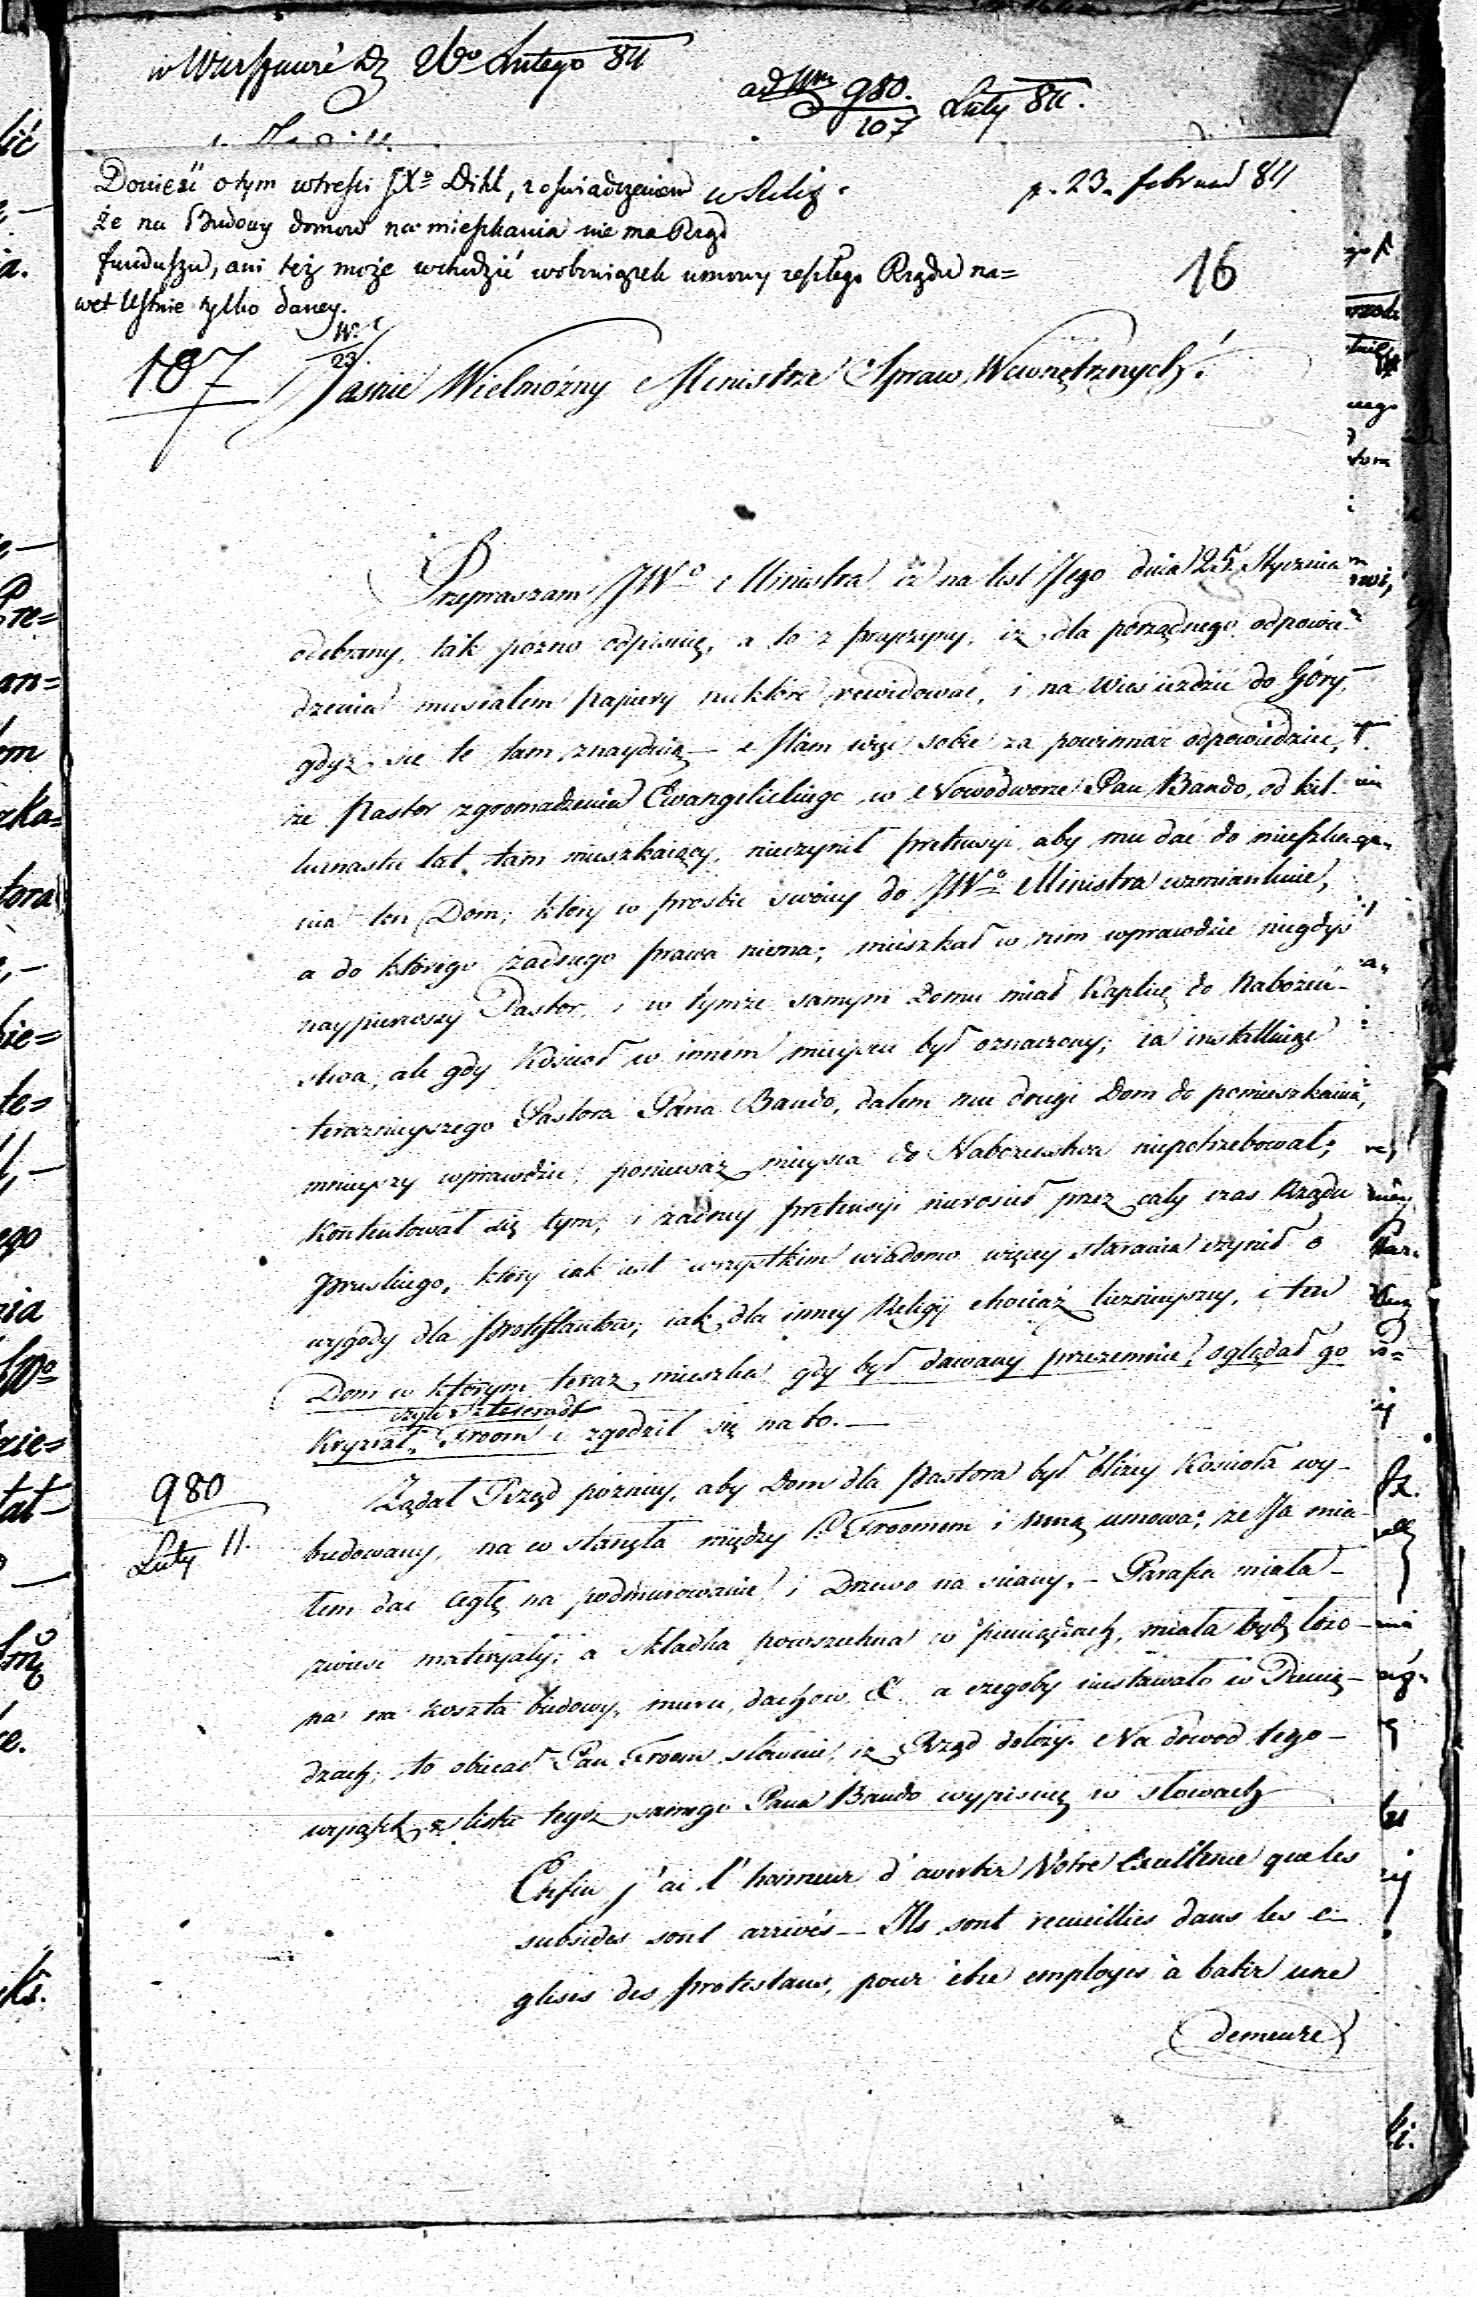 w Warszawie D. 26º Lutego 811
ad Num 980. Luty 811.
107
Donieść o tym w treści JXº Dihl, z oświadczeniem w Relig.
p. 23. februar 811
że na Budowy domow na mieszkania nie ma Rząd
funduszu, ani też może wchodzić w obowiązek umowy zeszłego Rządu na=
wet Ustnie tylko daney.
16
107
23
Jaśnie Wielmożny Ministrze Spraw Wewnętrznych!
Przepraszam JWº Ministra iż na list Jego dnia 25. Stycznia
odebrany, tak pozno odpisuię, a to z przyczyny, iż dla porządnego odpowie-
dzenia musiałem papiery niektóre rewidować, i na wieś iezdzić do Góry,
gdyż się te tam znayduią — Mam więc sobie za powinność odpowiedzieć,
że Pastor zgromadzenia Ewangelickiego w Nowodworze Pan Bando, od kil-
kunastu lat tam mieszkaiący, nieczynił pretensyi, aby mu dać do mieszka-
nia ten Dom, ktory w prosbie swoiey do JWº Ministra wzmiankuie,
a do ktorego żadnego prawa niema; mieszkał w nim wprawdzie niegdyś
naypierwszy Pastor, i w tymże samym Domu miał Kaplicę do Nabożeń-
stwa, ale gdy Kościoł w inném mieyscu był oznaczony; ia installuiąc
teraznieyszego Pastora Pana Bando, dałem mu drugi Dom do pomieszkania,
mnieyszy wprawdzie, ponieważ mieysca do Nabożenstwa niepotrzebował;
kontentował się tym, i żadney pretensyi nierościł przez cały czas Rządu
Pruskiego, ktory iak iest wszystkim wiadomo więcey starania czynił o
wygody dla Protestantow, iak dla inney Religii chociaż licznieyszey, i ten
Dom w ktorym teraz mieszka gdy był dawany przezemnie, oglądał go
czyli Szteierradt
Kryzrat. Froom i zgodził się na to. —
980
Luty 11.
Żądał Rząd pozniey, aby Dom dla Pastora był bliżey Kościoła wy-
budowany, na co stanęła między P. Froomem i mną umowa; że Ja mia-
łem dać cegłę na podmurowanie i Drzewo na sciany. — Parafia miała
zwieść materyały; a składka powszechna w pieniądzach, miała bydź łożo-
na na koszta budowy, muru, dachow &. a czegoby niestawało w Pienią-
dzach, to obiecał Pan Froom słownie, iż Rząd dołoży. Na dowod tego
wyiątek z listu tegoż samego Pana Bando wypisuię w słowach
Enfin j'ai l'honneur d'avertir Votre Excellence que les
subsides sont arrivés — Ils sont recueillies dans les e-
glises des protestans, pour être employés à batir une
demeure